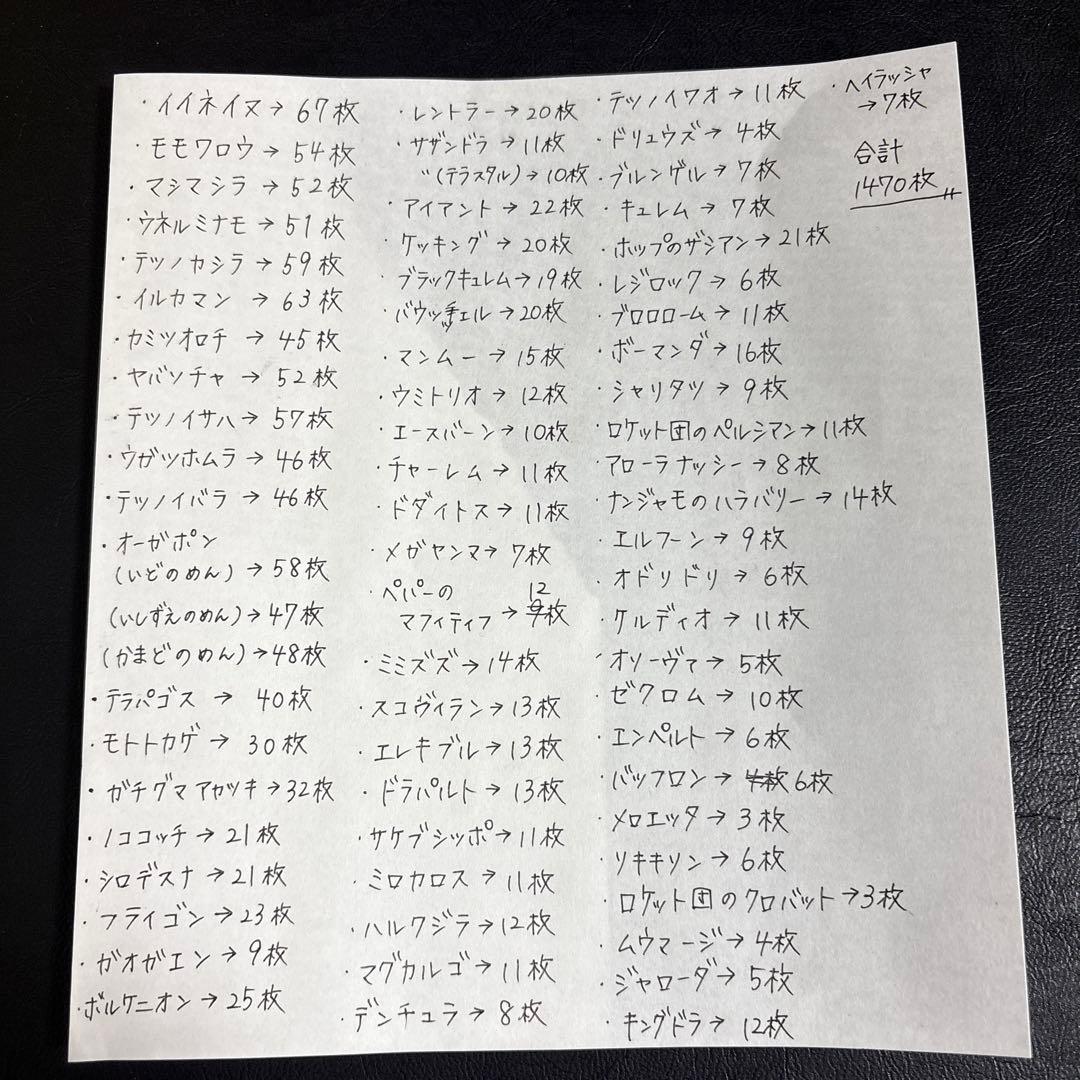 ・イイネイヌ→67枚
・モモワロウ→54枚
・マシマシラ→52枚
・ウネルミナモ→51枚
・テツノカシラ→59枚
・イルカマン→63枚
・カミツオロチ→45枚
・ヤバソチャ→52枚
・テツノイサハ→57枚
・ウガツホムラ→46枚
・テツノイバラ→46枚
・オーガポン
(いどのめん)→58枚
(いしずえのめん)→47枚
(かまどのめん)→48枚
・テラパゴス→40枚
・モトトカゲ→30枚
・ガチグマアカツキ→32枚
・ノココッチ→21枚
・シロデスナ→21枚
・フライゴン→23枚
・ガオガエン→9枚
・ボルケニオン→25枚
・レントラー→20枚
・サザンドラ→11枚
〃(テラスタル)→10枚
・アイアント→22枚
・ケッキング→20枚
・ブラックキュレム→19枚
・バウッツェル→20枚
・マンムー→15枚
・ウミトリオ→12枚
・エースバーン→10枚
・チャーレム→11枚
・ドダイトス→11枚
・メガヤンマ→7枚
・ペパーの 12
マフィティフ→9枚
・ミミズズ→14枚
・スコヴィラン→13枚
・エレキブル→13枚
・ドラパルト→13枚
・サケブシッポ→11枚
・ミロカロス→11枚
・ハルクジラ→12枚
・マグカルゴ→11枚
・デンチュラ→8枚
・テツノイワオ→11枚
・ドリュウズ→4枚
・ブルンゲル→7枚
・キュレム→7枚
・ホップのザシアン→21枚
・レジロック→6枚
・ブロロローム→11枚
・ボーマンダ→16枚
・シャリタツ→9枚
・ロケット団のペルシアン→11枚
・アローラナッシー→8枚
・ナンジャモのハラバリー→14枚
・エルフーン→9枚
・オドリドリ→6枚
・ケルディオ→11枚
・オリーヴァ→5枚
・ゼクロム→10枚
・エンペルト→6枚
・バッフロン→4枚 6枚
・メロエッタ→3枚
・リキキリン→6枚
・ロケット団のクロバット→3枚
・ムウマージ→4枚
・ジャローダ→5枚
・キングドラ→12枚
・ヘイラッシャ
→7枚
合計
1470枚